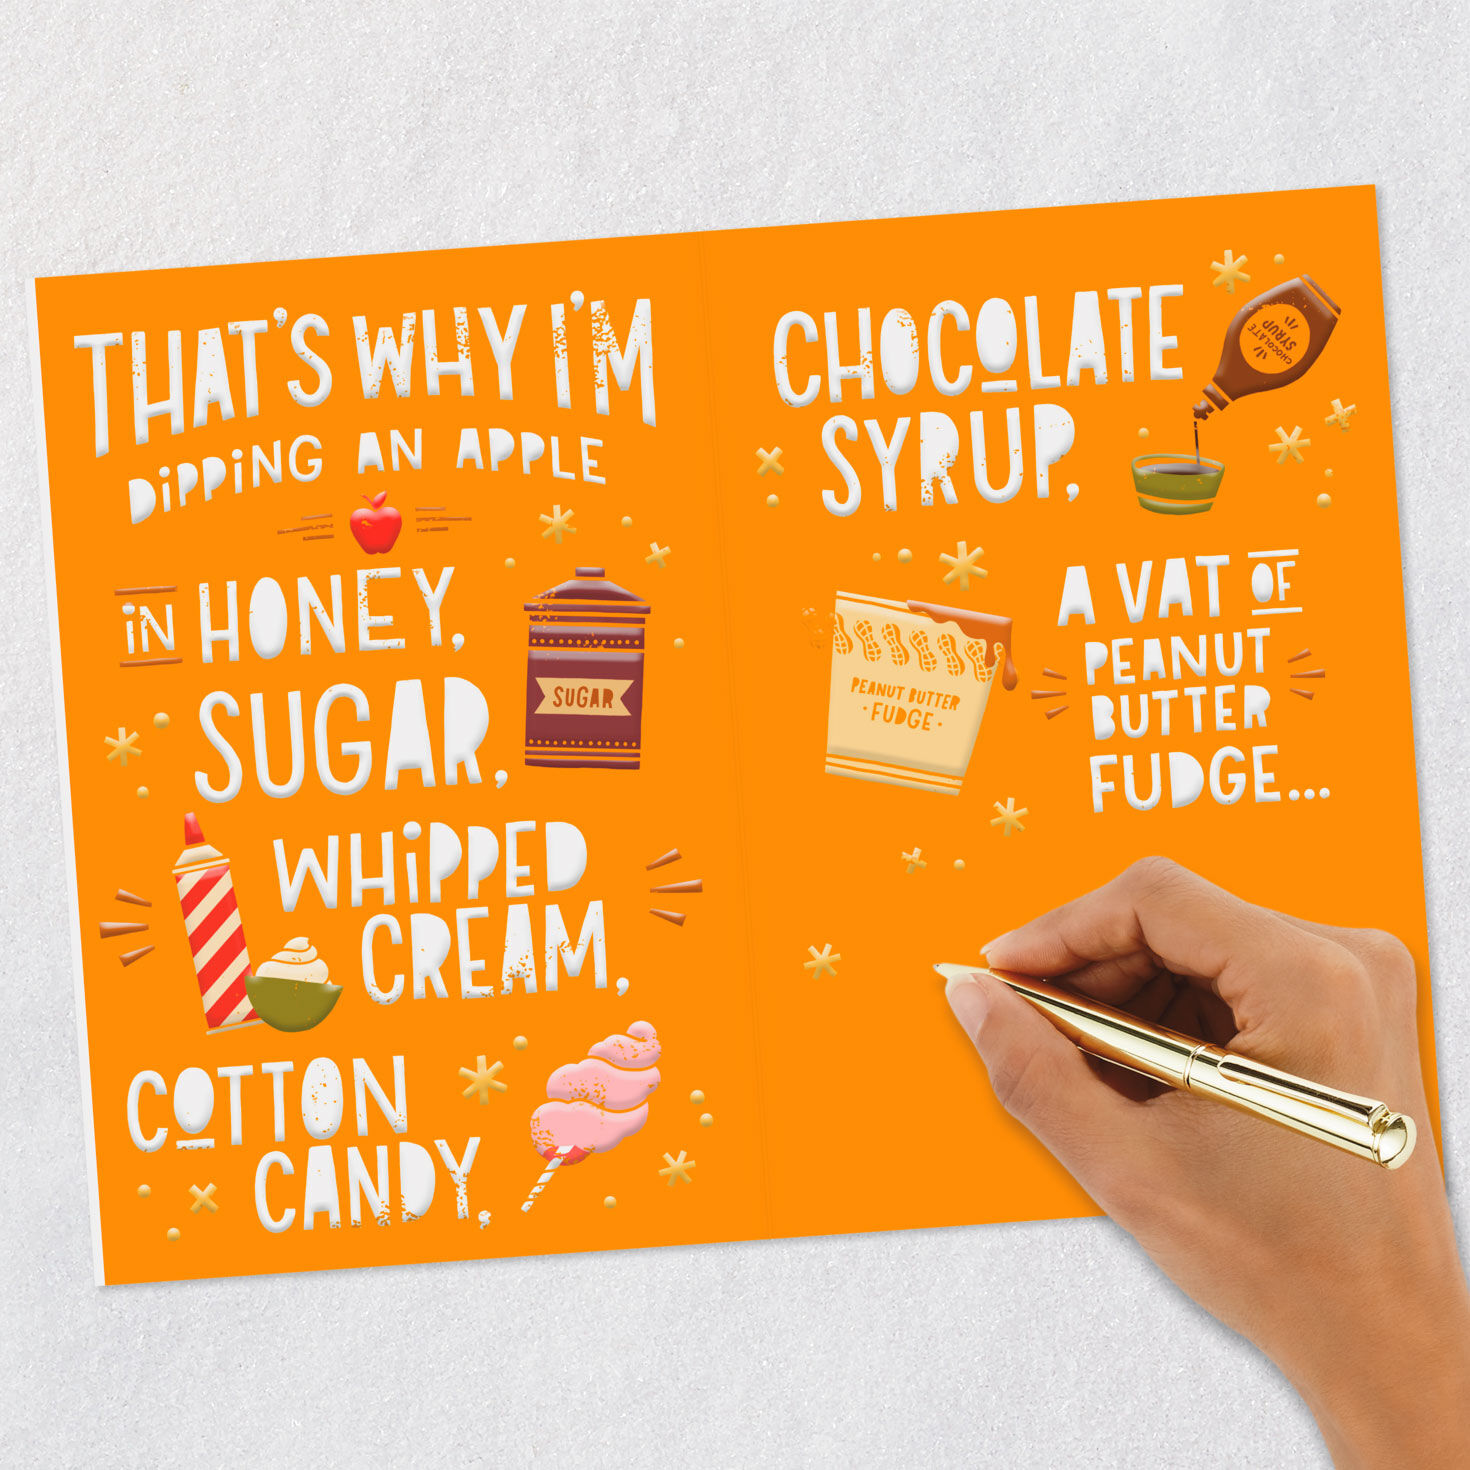 THAT'S WHY I'M
DiPPiNG AN APPLE
iN HONEY,
SUGAR,
SUGAR
WHiPPED
CREAM,
COTTON
CANDY,
CHOCOLATE
SYRUP,
CHOCOLATE
SYRUP
A VAT OF
PEANUT
BUTTER
FUDGE...
PEANUT BUTTER
·FUDGE·